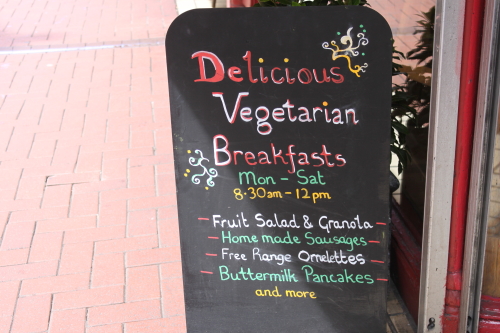 Delicious
Vegetarian
Breakfasts
Mon - Sat
8.30am - 12pm
- Fruit Salad & Granola -
- Home made Sausages -
- Free Range Omelettes -
- Buttermilk Pancakes -
and more